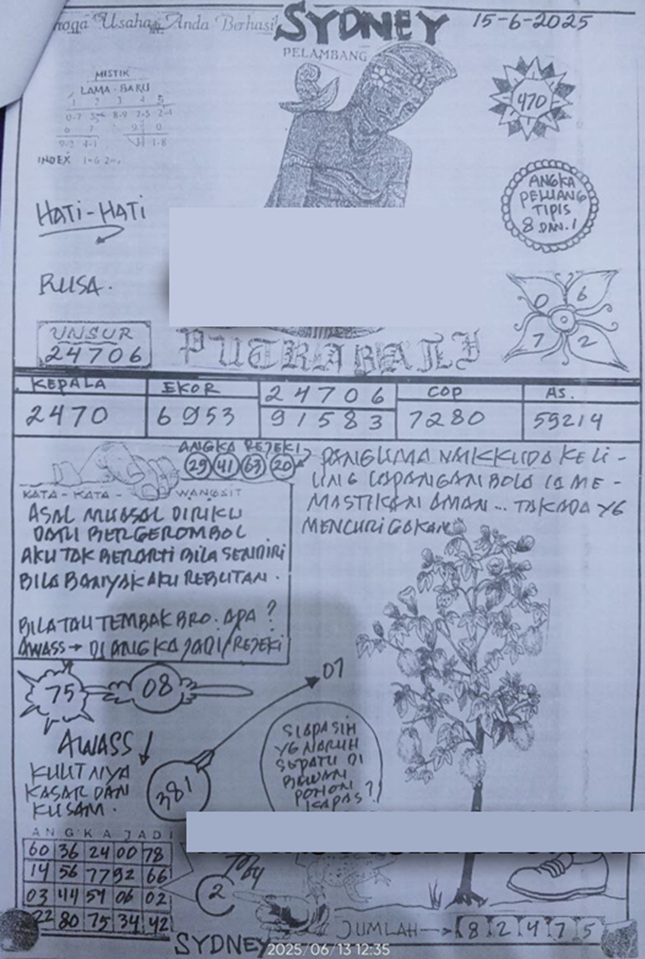 Usaha Anda Berhasil
SYDNEY
15-6-2025
PELAMBANG
MISTIK
LAMA - BARU
1 2 3 4 5
0-7 8-9
6 7
INDEX
470
HATI-HATI
ANGKA
PELUANG
TIPIS
8 DAN 1
RUSA.
0 6
7 2
UNSUR
24706
PUTRA BALI
KEPALA EKOR 24706 COP AS.
2470 6953 91583 7280 59214
ANGKA REJEKI
29 41 63 20
KATA - KATA - WANGSIT
ASAL MUASAL DIRIKU
DARI BERGEROMBOL
AKU TAK BERARTI BILA SENDIRI
BILA BANYAK AKU REBUTAN.
BILA TAU TEMBAK BRO. APA?
AWASS → DI ANGKA JADI/REJEKI
PANGLIMA NAIK KUDA KELI-
LING LAPANGAN BOLA IA ME-
MASTIKAN AMAN... TAK ADA YG
MENCURIGAKAN
75 08
07
AWASS!
KULITNYA
KASAR DAN
KUSAM.
381
SIAPA SIH
YG NARUH
SEPATU DI
BAWAH
POHON
KAPAS?
ANGKA JADI
60 36 24 00 78
14 56 77 92 66
03 44 59 06 02
22 80 75 34 42
2
JUMLAH → 8 2 4 7 5
SYDNEY
2025/06/13 12:35